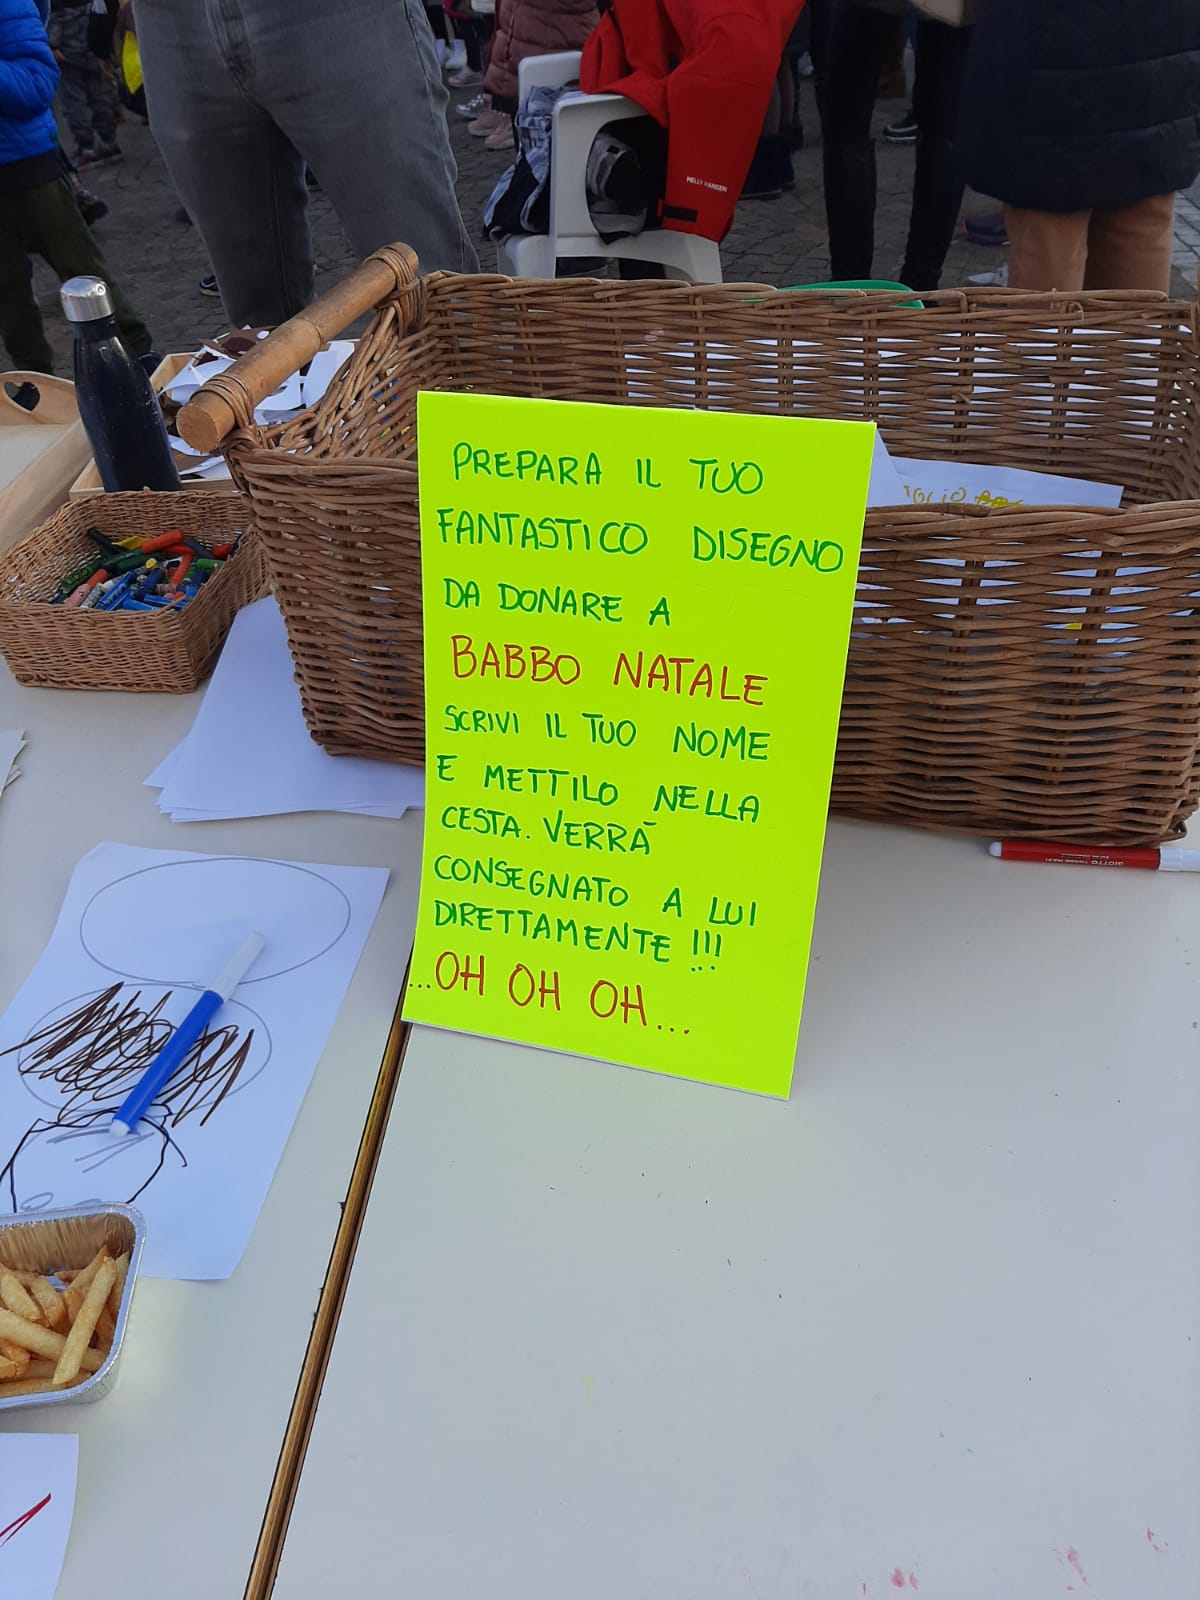 PREPARA IL TUO
FANTASTICO DISEGNO
DA DONARE A
BABBO NATALE
SCRIVI IL TUO NOME
E METTILO NELLA
CESTA. VERRÀ
CONSEGNATO A LUI
DIRETTAMENTE !!!
...OH OH OH...
HELLY HANSEN
GIOTTO TURBO MAXI